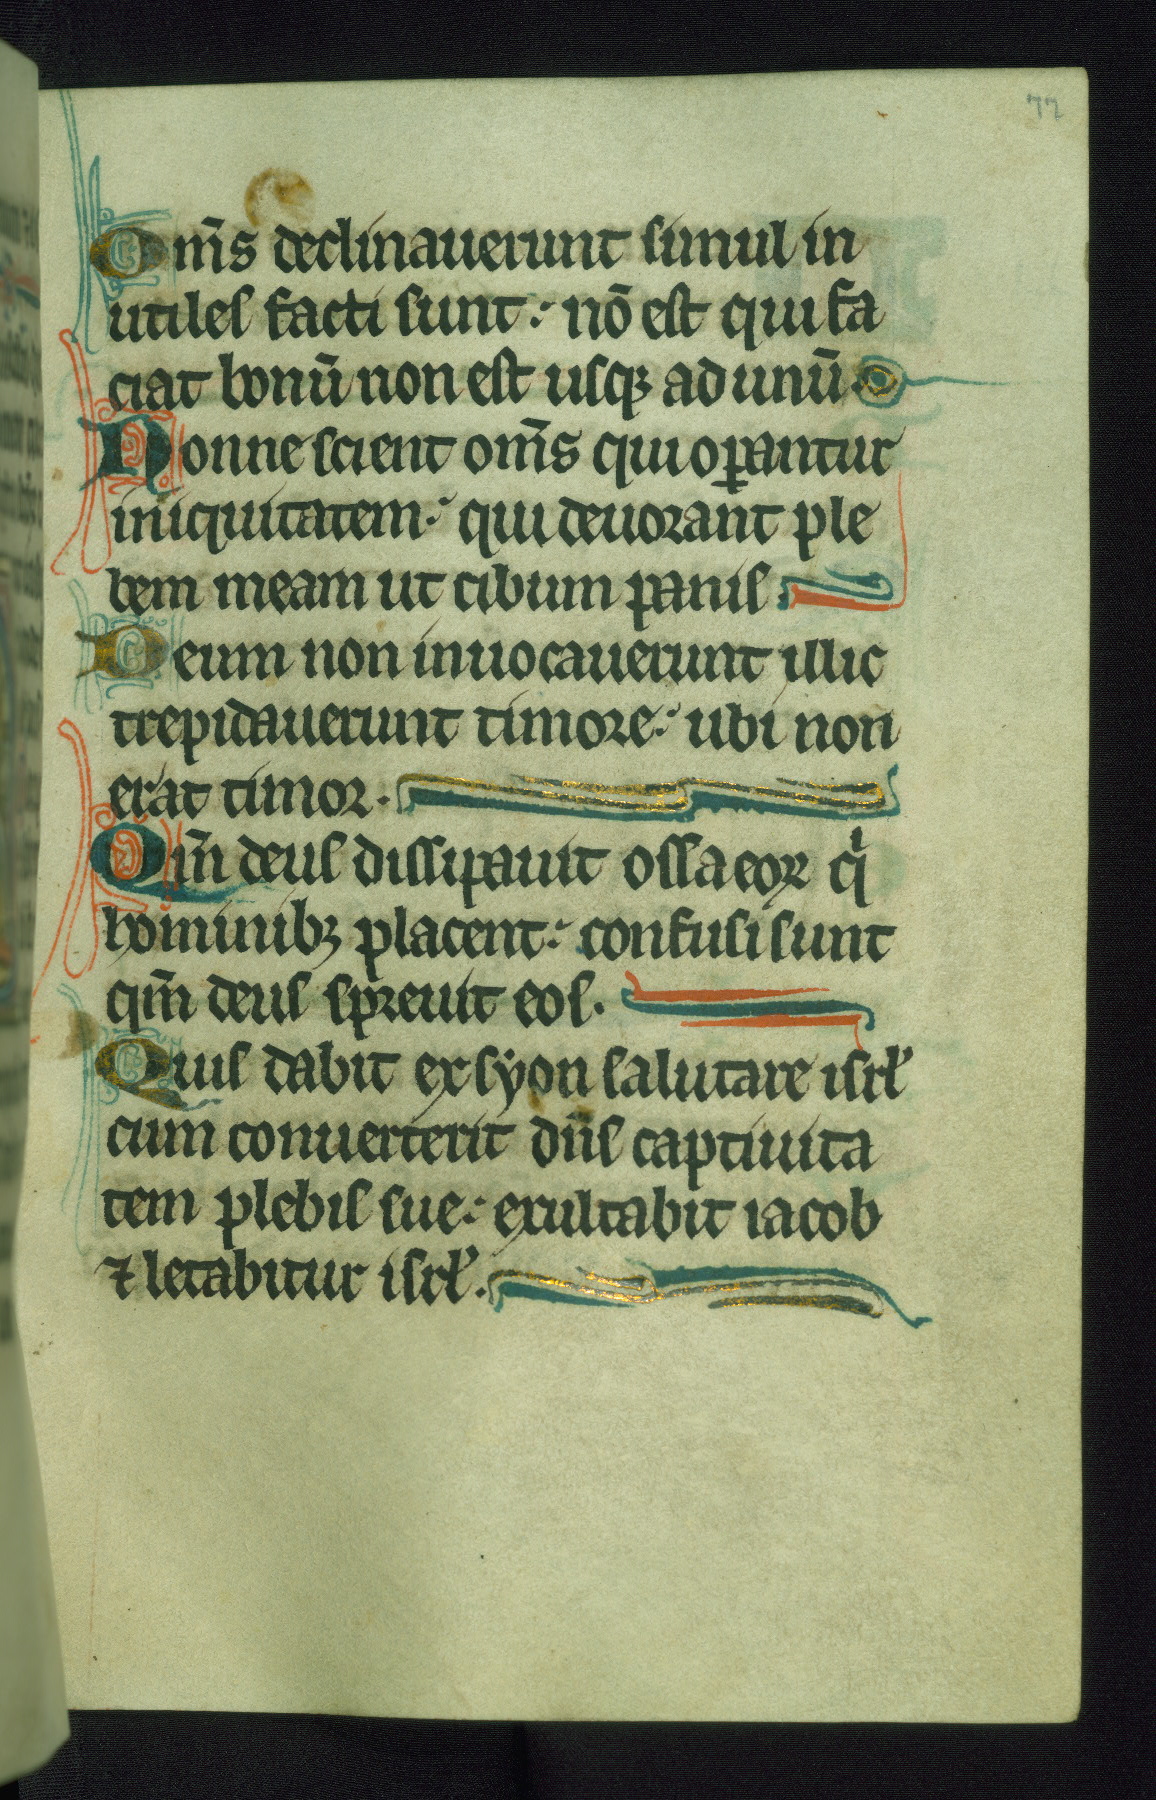 77
Om̄s declinauerunt simul in
utiles facti sunt: nō est qui fa
ciat bonū non est usqꝫ ad unū.
Nonne scient om̄s qui oꝑantur
iniquitatem: qui deuorant ple
bem meam ut cibum panis.
Deum non inuocauerunt illic
trepidauerunt timore: ubi non
erat timor.
Qm̄ deus dissipauit ossa eoꝝ qͥ
hominibꝫ placent: confusi sunt
qm̄ deus spreuit eos.
Quis dabit ex syon salutare isrl̓
cum conuerterit dn̄s captiuita
tem plebis sue: exultabit iacob
⁊ letabitur isrl̓.